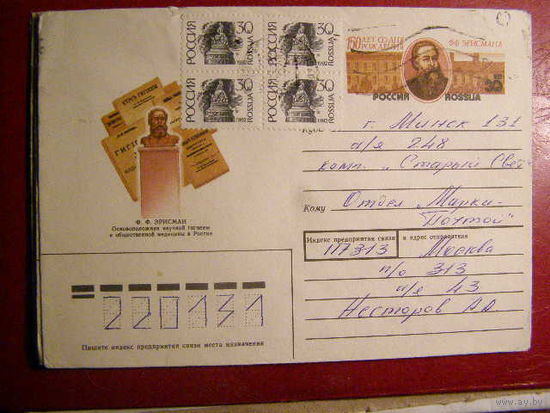 РОССИЯ 30 ROSSIJA 1992
РОССИЯ 30 ROSSIJA 1992
РОССИЯ 30 ROSSIJA 1992
РОССИЯ 30 ROSSIJA 1992
150 ЛЕТ СО ДНЯ РОЖДЕНИЯ
Ф.Ф. ЭРИСМАНА
РОССИЯ ROSSIJA
Куда г. Минск 131
а/я 248
комп. „Старый Свет
Кому Отдел „Марки-
Почтой"
КУРС ГИГИЕНЫ
Ф. Ф. ЭРИСМАН
Основоположник научной гигиены
и общественной медицины в России
Индекс предприятия связи и адрес отправителя
117313 Москва
п/о 313
а/я 43
Нестеров АА
220131
Пишите индекс предприятия связи места назначения
www.ay.by